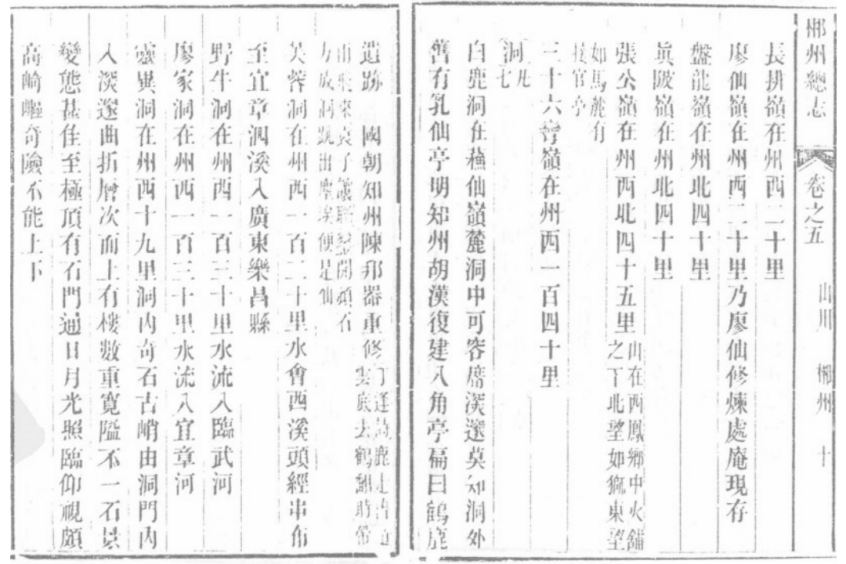 郴州總志 卷之五 山川 郴州 十
長排嶺在州西二十里
廖仙嶺在州西二十里乃廖仙修煉處庵現存
盤龍嶺在州北四十里
黃陂嶺在州北四十里
張公嶺在州西北四十五里山在西鳳鄉中火舖
之下北望如獅東望
如馬麓有
接官亭
三十六彎嶺在州西一百四十里
洞九
洞七
白鹿洞在蘇仙嶺麓洞中可容席深邃莫知洞外
舊有乳仙亭明知州胡漢復建八角亭扁曰鶴鹿
遺跡 國朝知州陳邦器重修
芙蓉洞在州西一百二十里水會西溪頭經車布
至宜章泗溪入廣東樂昌縣
野牛洞在州西一百三十里水流入臨武河
廖家洞在州西一百三十里水流入宜章河
靈異洞在州西十九里洞內奇石古峭由洞門內
入深邃曲折層次而上有樓數重寬隘不一石景
變態甚佳至極頂有石門通日月光照臨仰視頗
高崎嶇奇險不能上下